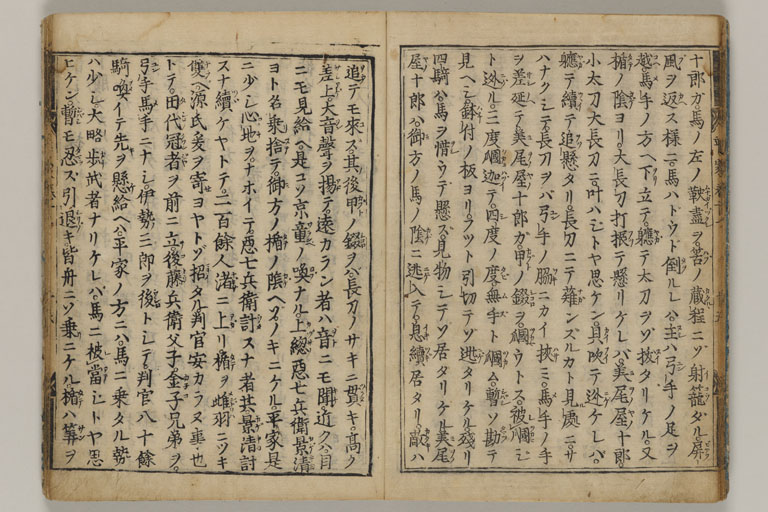 十郎ガ馬ノ左ノ鞅盡ヲ筈ノ蔵程ニゾ射籠ダル屏
風ヲ返ス様ニ馬ハドウド倒ルレハ主ハ弓手ノ足ヲ
越馬手ノ方ヘ下立テ軈テ太刀ヲゾ抜タリケル又
楯ノ陰ヨリ大長刀打振テ懸リケレバ美尾屋十郎
小太刀大長刀ニ叶ハジトヤ思ケン貝吹テ迯ケレバ
軈テ續テ追懸タリ長刀ニテ薙ンズルカト見處ニサ
ハナクシテ長刀ヲバ弓手ノ脇ニカイ挾ミ馬手ノ手
ヲ差延テ美尾屋十郎ガ甲ノ錣ヲ掴ウトス被掴ジ
ト迯ル三度掴迦テ四度ノ度無手ト掴ム暫ゾ勘テ
見ヘシ鉢付ノ板ヨリフツト引切テゾ迯タリケル残リ
四騎ハ馬ヲ惜ウテ懸ズ見物シテゾ居タリケル美尾
屋十郎ハ御方ノ馬ノ陰ニ迯入テ息續居タリ敵ハ
追テモ來ズ其後甲ノ錣ヲハ長刀ノサキニ貫キ高ク
差上大音聲ヲ揚テ遠カラン者ハ音ニモ聞近クハ目
ニモ見給ヘ是コソ京童ノ喚ナル上總惡七兵衛景清
ヨト名乗捨テ御方ノ楯ノ陰ヘゾノキニケル平家是
ニ少シ心地ヲナホイテ惡七兵衛討スナ者共景清討
スナ續ケヤトテ二百餘人渚ニ上リ楯ヲ雌羽ニツキ
雙ヘ源氏爰ヲ寄ヨヤトゾ招タル判官安カラヌ事也
トテ田代冠者ヲ前ニ立後藤兵衛父子金子兄弟ヲ
弓手馬手ニナシ伊勢三郎ヲ後トシテ判官八十餘
騎喚イテ先ヲ懸給ヘハ平家ノ方ニハ馬ニ乗タル勢
ハ少シ大略歩武者ナリケレバ馬ニ被當ジトヤ思
ヒケン暫モ忍ズ引退キ皆舟ニゾ乗ニケル楯ハ筭ヲ